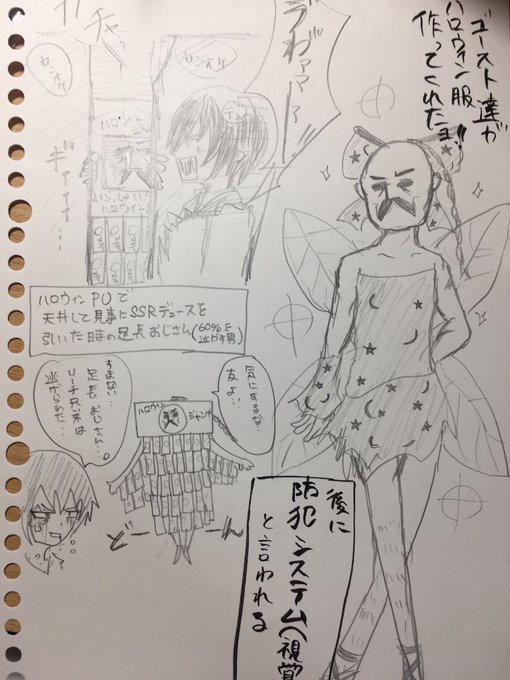 ゴースト達が
ハロウィン服
作ってくれたヨ!!
ガチャ
ヴわァァァァ
ヤンオケ
ハロウィン
ハッピー
ハロウィン
ギャァァァ…
ハロウィンPUで
天井して見事にSSRデュースを
引いた時の足長おじさん(60%を逃がす男)
すまない…
足長おじさん…
リーチ兄弟は
逃げられた…。
気にするな
友よ…
ハロウィン
ジャック
どーーーん
後に
防犯システム(視覚
と言われる